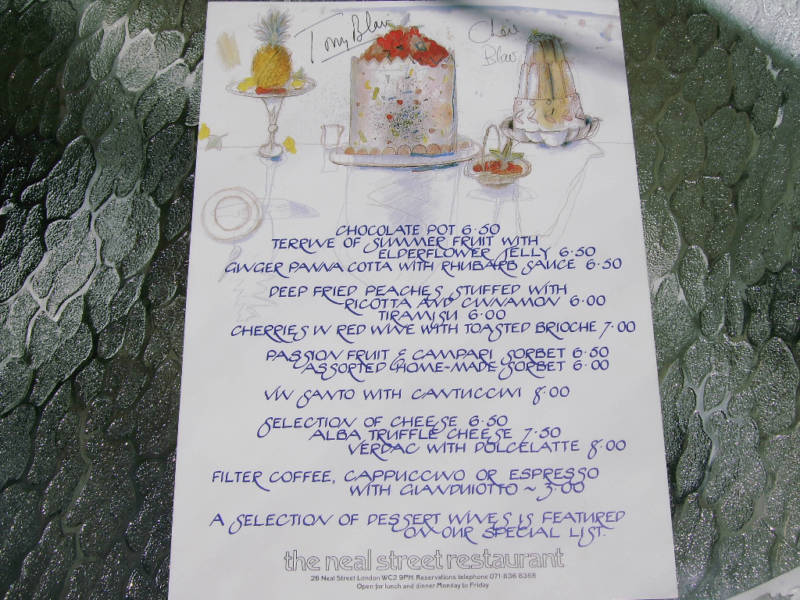 Tony Blair
Cherie
Blair
CHOCOLATE POT 6·50
TERRINE OF SUMMER FRUIT WITH
ELDERFLOWER JELLY 6·50
GINGER PANNA COTTA WITH RHUBARB SAUCE 6·50
DEEP FRIED PEACHES STUFFED WITH
RICOTTA AND CINNAMON 6·00
TIRAMISU 6·00
CHERRIES IN RED WINE WITH TOASTED BRIOCHE 7·00
PASSION FRUIT & CAMPARI SORBET 6·50
ASSORTED HOME-MADE SORBET 6·00
VIN SANTO WITH CANTUCCINI 8·00
SELECTION OF CHEESE 6·50
ALBA TRUFFLE CHEESE 7·50
VERDAC WITH DOLCELATTE 8·00
FILTER COFFEE, CAPPUCCINO OR ESPRESSO
WITH GIANDUIOTTO ~ 3·00
A SELECTION OF DESSERT WINES IS FEATURED
ON OUR SPECIAL LIST.
the neal street restaurant
26 Neal Street London WC2 9PH Reservations telephone 071-836 8368
Open for lunch and dinner Monday to Friday